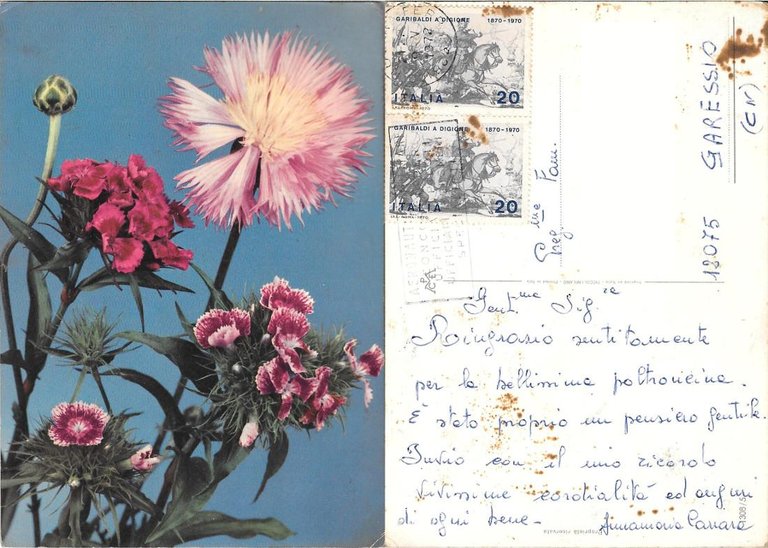 GARIBALDI A DIGIONE 1870-1970
ITALIA 20
I.P.S.-ROMA-1970
GARIBALDI A DIGIONE 1870-1970
ITALIA 20
I.P.S.-ROMA-1970
Preg.me Fam.
12075 GARESSIO
(CN)
Gent.me Sig.re
Ringrazio sentitamente
per la bellissima poltroncina.
È stato proprio un pensiero gentile.
Invio con il mio ricordo
vivissime cordialità ed auguri
di ogni bene - Annamaria Carrara
Proprietà riservata
308/5